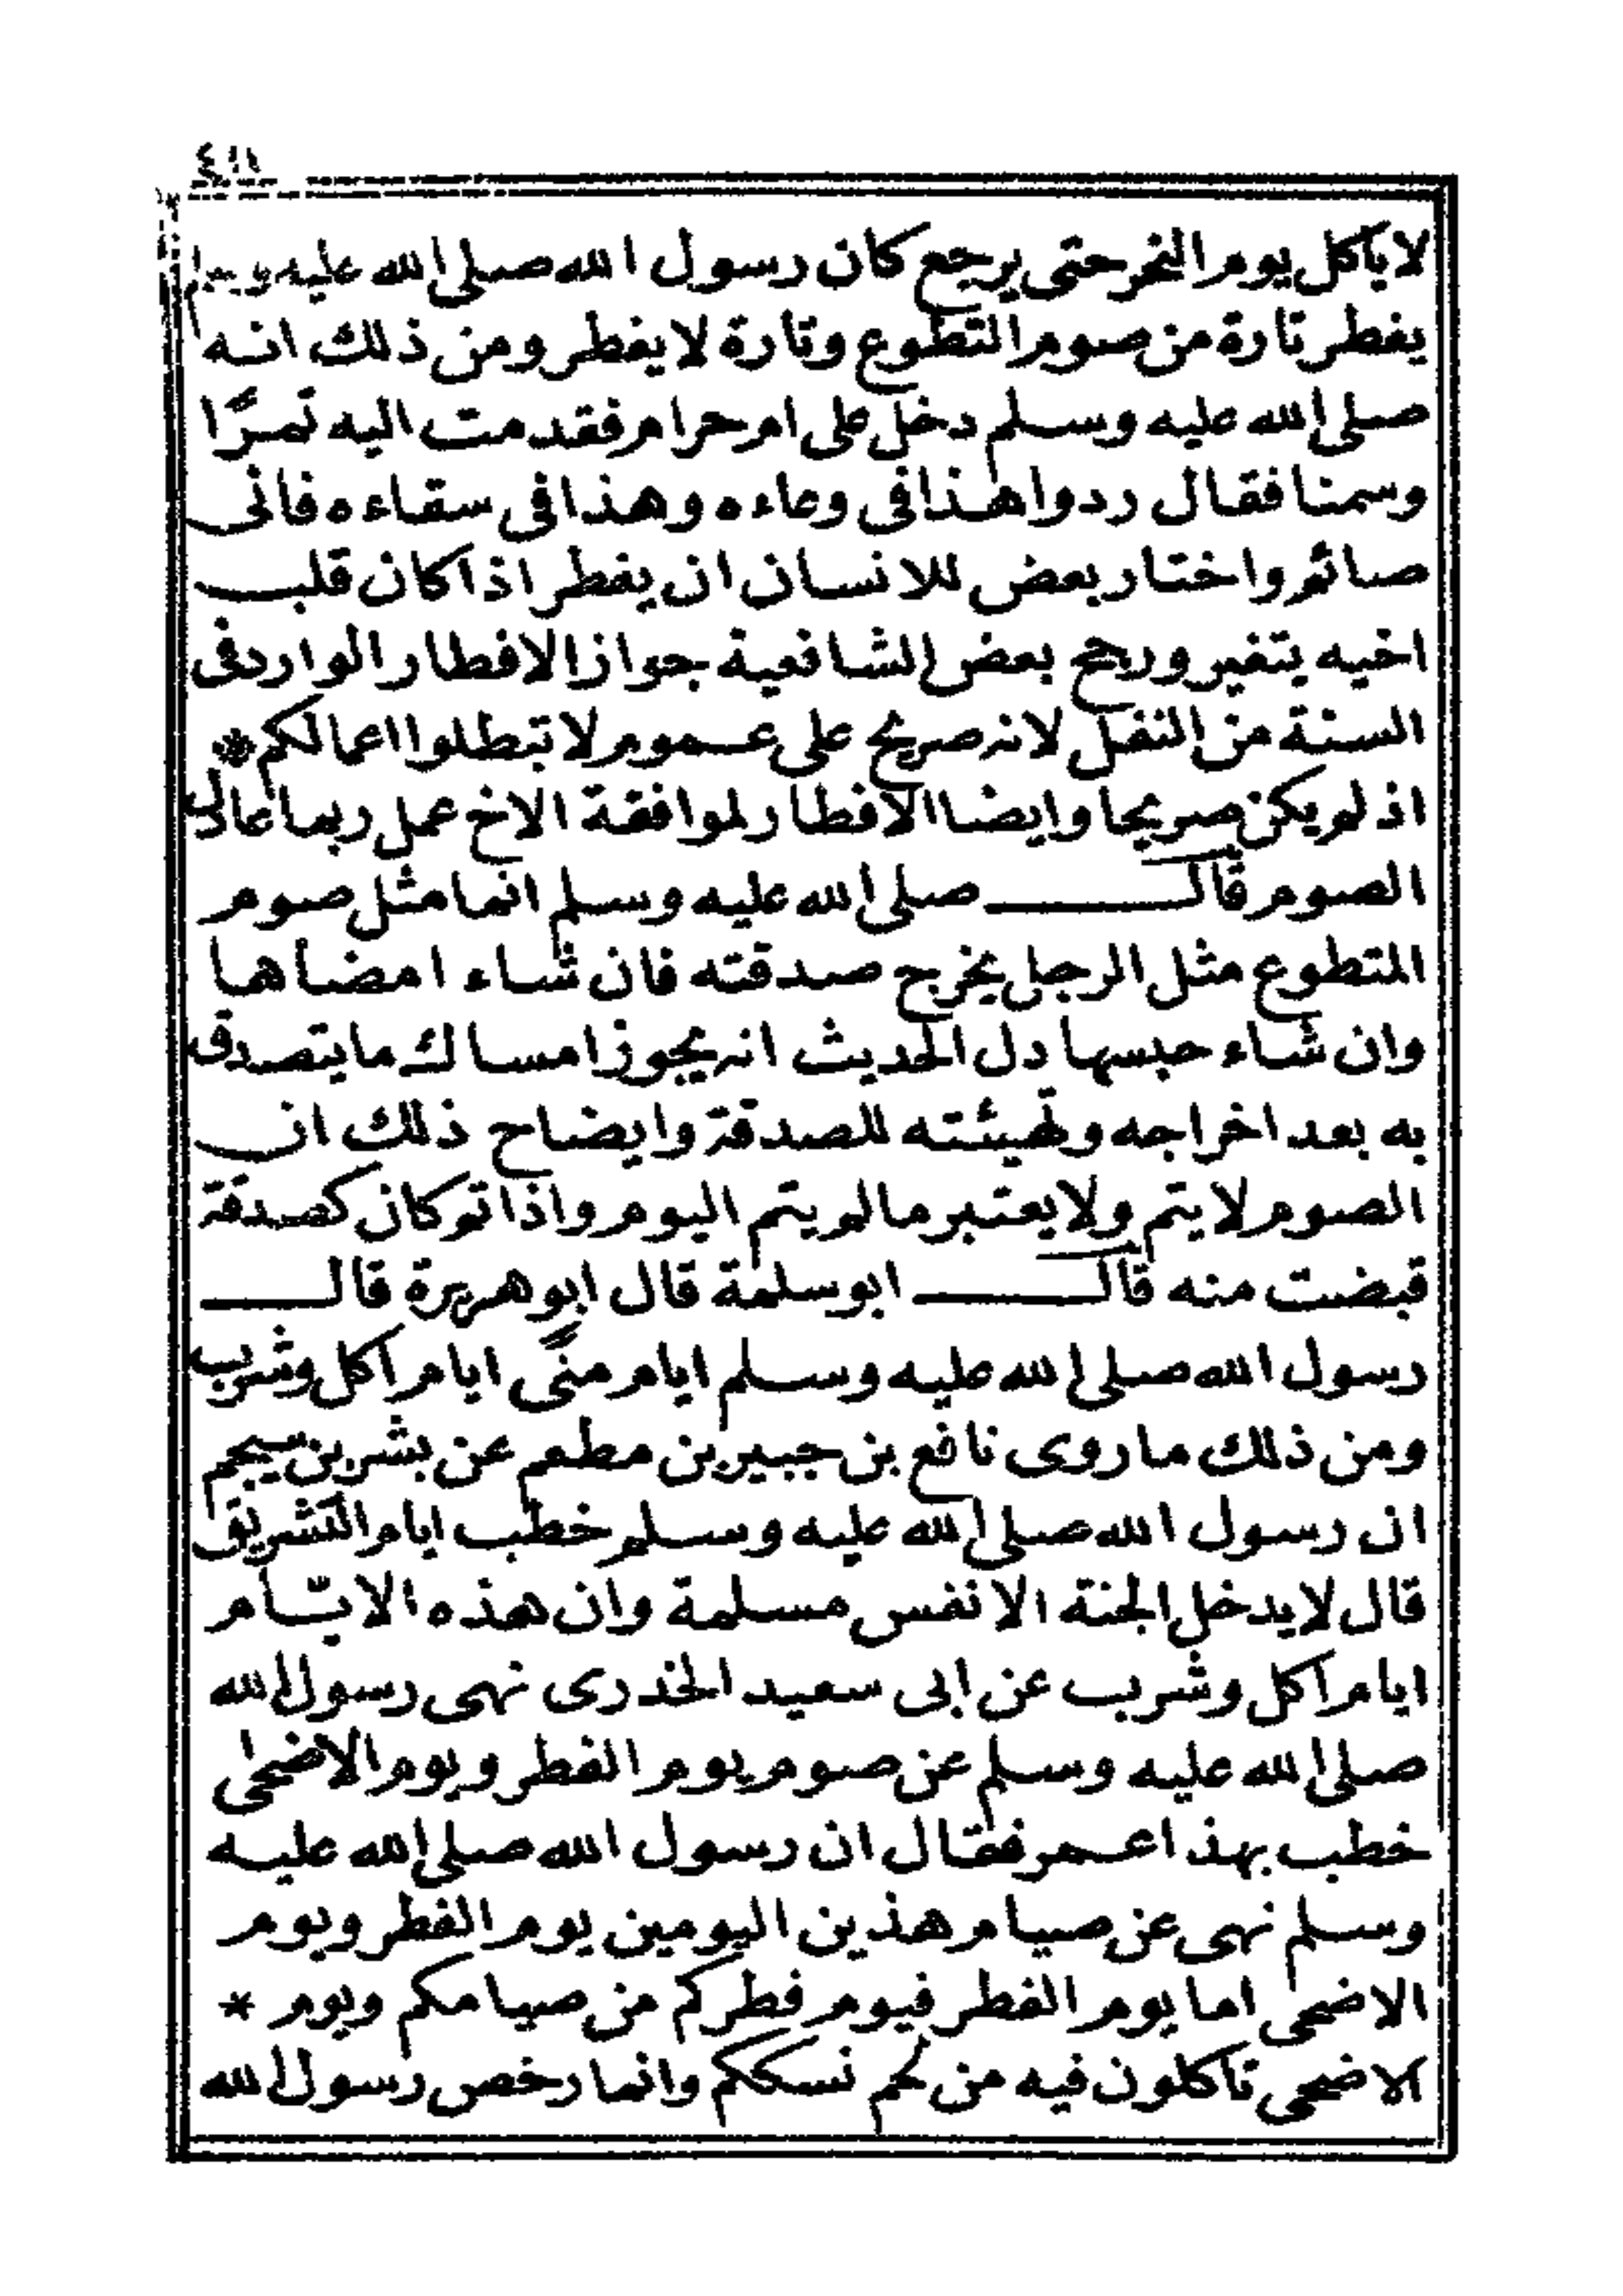 لا ياكل يوم النحر حتى يرجع كان رسول الله صلى الله عليه وسلم
يفطر تارة من صوم التطوع وتارة لا يفطر ومن ذلك انه
صلى الله عليه وسلم دخل على ام حرام فقدمت اليه تمرًا
وسمنا فقال ردوا هذا فى وعاءه وهذا فى سقاءه فانى
صائم واختار بعض للانسان ان يفطر اذا كان قلب
اخيه يتغير ورجح بعض الشافعية جواز الافطار الوارد فى
السنة من النفل لانه صريح على عموم لا تبطلوا اعمالكم *
اذ لم يكن صريحا وايضا الافطار لموافقة الاخ عمل ربما عادل
الصوم قال صلى الله عليه وسلم انما مثل صوم
المتطوع مثل الرجل يخرج صدقته فان شاء امضاها
وان شاء حبسها دل الحديث انه يجوز امساك ما يتصدق
به بعد اخراجه وتهيئته للصدقة وايضاح ذلك ان
الصوم لا يتم ولا يعتبر ما لم يتم اليوم واذا تم كان كصدقة
قبضت منه قال ابو سلمة قال ابو هريرة قال
رسول الله صلى الله عليه وسلم ايام منًى ايام اكل وشرب
ومن ذلك ما روى نافع بن جبير بن مطعم عن بشر بن سيجم
ان رسول الله صلى الله عليه وسلم خطب ايام التشريق
قال لا يدخل الجنة الا نفس مسلمة وان هذه الايّام
ايام اكل وشرب عن ابى سعيد الخدرى نهى رسول الله
صلى الله عليه وسلم عن صوم يوم الفطر ويوم الاضحى
خطب بهذا عمر فقال ان رسول الله صلى الله عليه
وسلم نهى عن صيام هذين اليومين يوم الفطر ويوم
الاضحى اما يوم الفطر فيوم فطركم من صيامكم ويوم *
الاضحى تاكلون فيه من لحم نسككم وانما رخص رسول الله